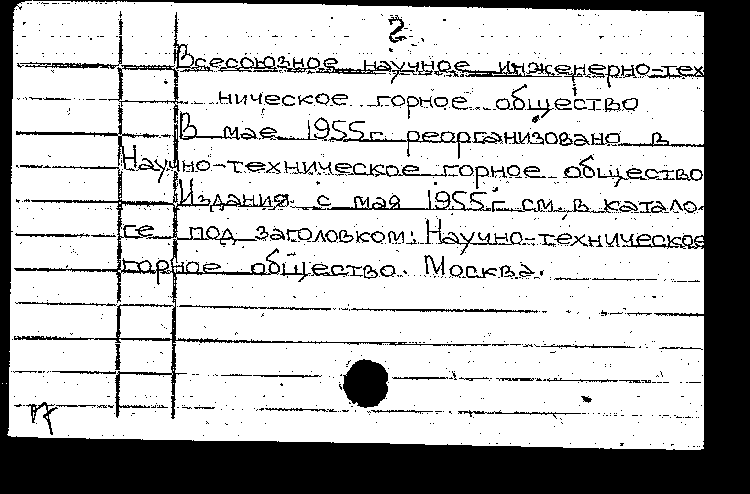 2
Всесоюзное научное инженерно-тех
ническое горное общество
В мае 1955г. реорганизовано в
Научно-техническое горное общество
Издания с мая 1955г. см. в катало-
ге под заголовком: Научно-техническое
горное общество. Москва.